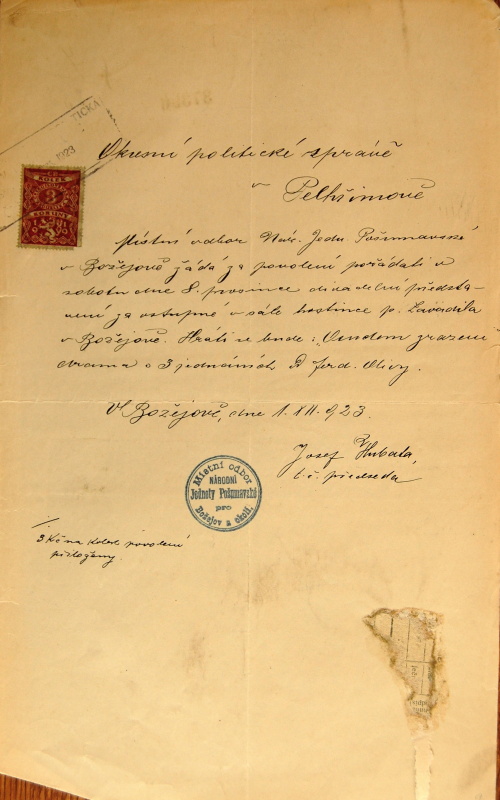 TICKÁ
1923
Okresní politické správě
v Pelhřimově
KOLEK
3
KORUNY
Místní odbor Nár. Jedn. Pošumavské
v Božejově žádá za povolení pořádati v
sobotu dne 8. prosince divadelní předsta-
vení za vstupné v sále hostince p. Lavadila
v Božejově. Hráti se bude: Osudem zraženi
drama o 3 jednáních. Ferd. Olivy.
V Božejově, dne 1. XII. 923.
Josef Hubata,
t. č. předseda
Místní odbor
NÁRODNÍ
Jednoty Pošumavské
pro
Božejov a okolí.
3 Kč na kolek povolení
přiloženy.